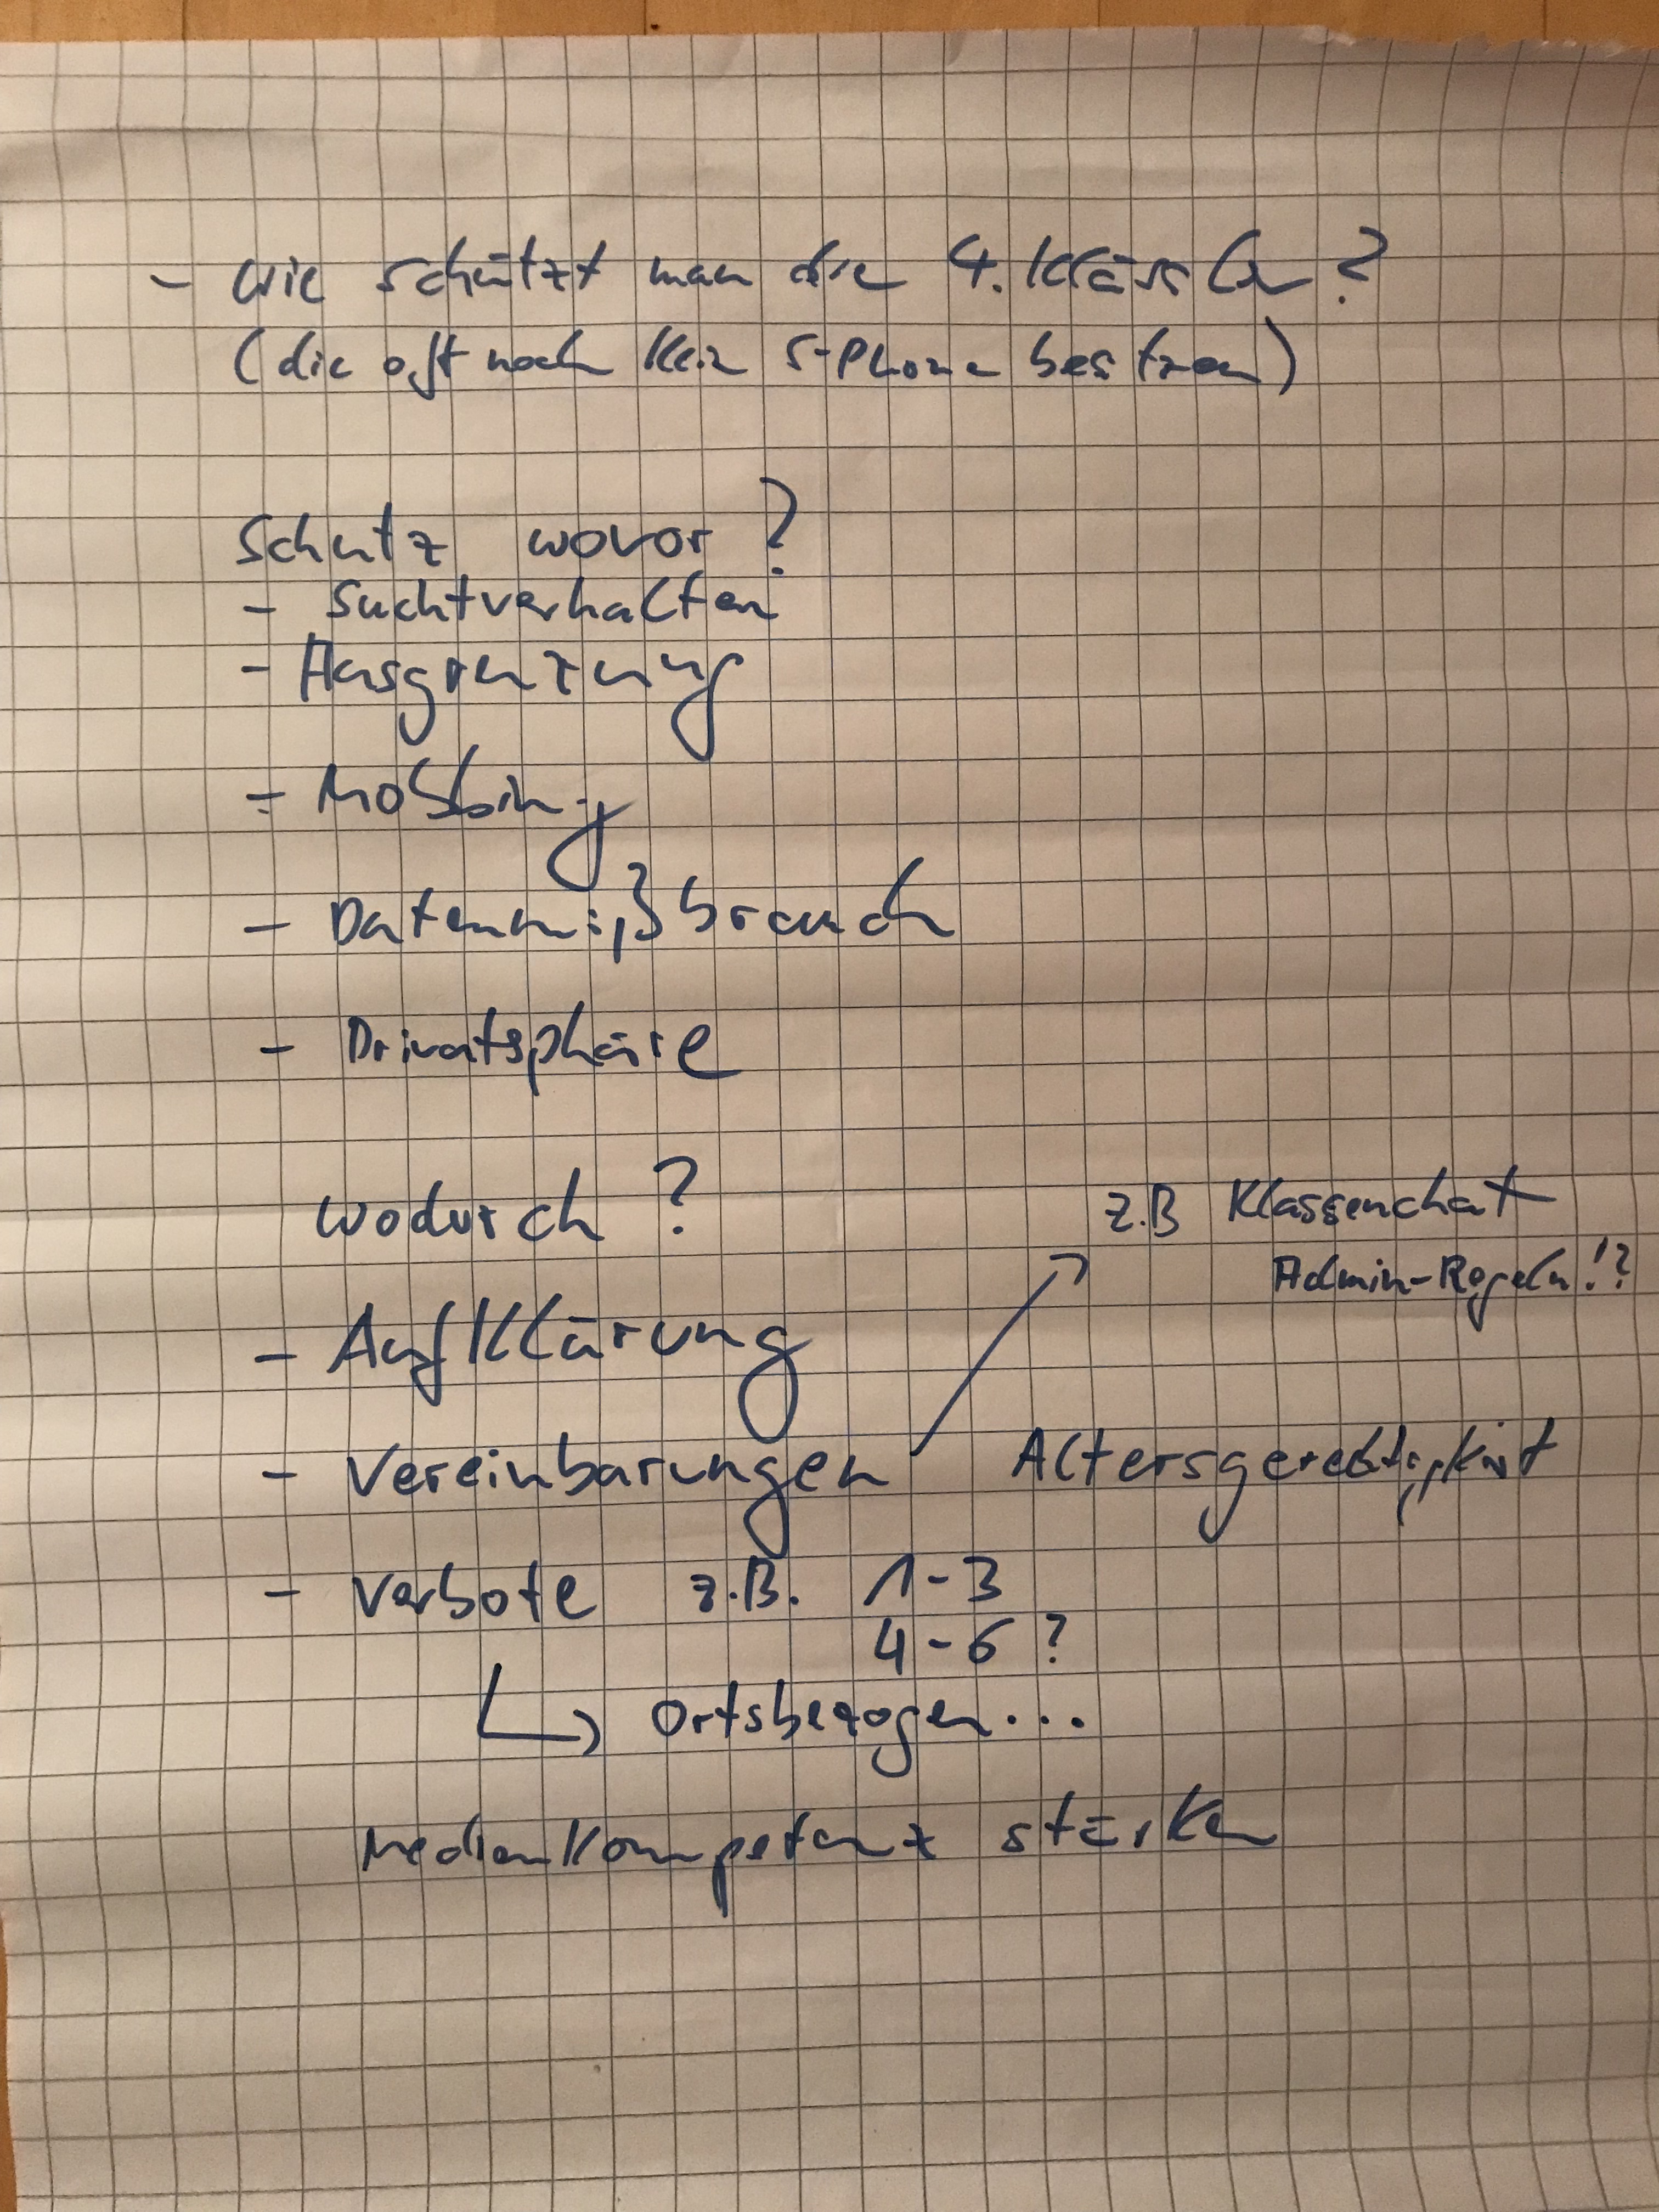 - Wie schützt man die 4. Klässler?
(die oft noch kein S-Phone besitzen)
Schutz wovor?
- Suchtverhalten
- Ausgrenzung
- Mobbing
- Datenmißbrauch
- Privatsphäre
wodurch?
z.B Klassenchat
Admin-Regeln!?
- Aufklärung
- Vereinbarungen Altersgerechtigkeit
- Verbote z.B. 1-3
4-6?
↳ Ortsbezogen...
Medienkompetenz stärken